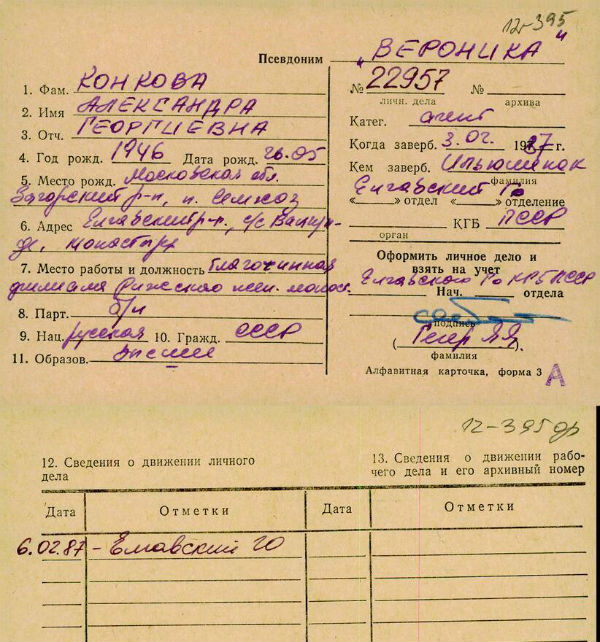 12-395
Псевдоним „ВЕРОНИКА"
1. Фам. КОНКОВА
2. Имя АЛЕКСАНДРА
3. Отч. ГЕОРГИЕВНА
4. Год рожд. 1946 Дата рожд. 26.05
5. Место рожд. Московская обл.
Загорский р-н, п. Семхоз
6. Адрес Елгавский р-н, с/с
монастырь
7. Место работы и должность благочинная
филиала Рижского жен. монаст.
8. Парт. б/п
9. Нац. русская 10. Гражд. СССР
11. Образов. высшее
№ 22957 №
личн. дела архива
Катег. агент
Когда заверб. 3.02. 1987 г.
Кем заверб. Ильюшинак
фамилия
Елгавский ГО
«    » отдел «    » отделение
КГБ ЛССР
орган
Оформить личное дело и
взять на учет
Елгавского ГО КГБ ЛССР
Нач. отдела
подпись
(              )
фамилия
Алфавитная карточка, форма 3
А
12-395 др
12. Сведения о движении личного
дела
13. Сведения о движении рабо-
чего дела и его архивный номер
Дата Отметки Дата Отметки
6.02.87 - Елгавский ГО